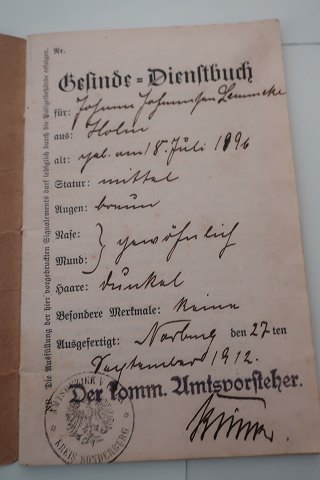 Nr.
Gesinde-Dienstbuch
für: Johann Johannsen Lemmcke
aus: Holm
alt: geb. am 18. Juli 1896
Statur: mittel
Augen: braun
Nase: } gewöhnlich
Mund:
Haare: dunkel
Besondere Merkmale: keine
Ausgefertigt: Norburg den 27 ten
September 1912.
Der komm. Amtsvorsteher.
KREIS SONDERBURG
NB. Die Ausfüllung der hier vorgedruckten Signalements darf lediglich durch die Polizeibehörde erfolgen.